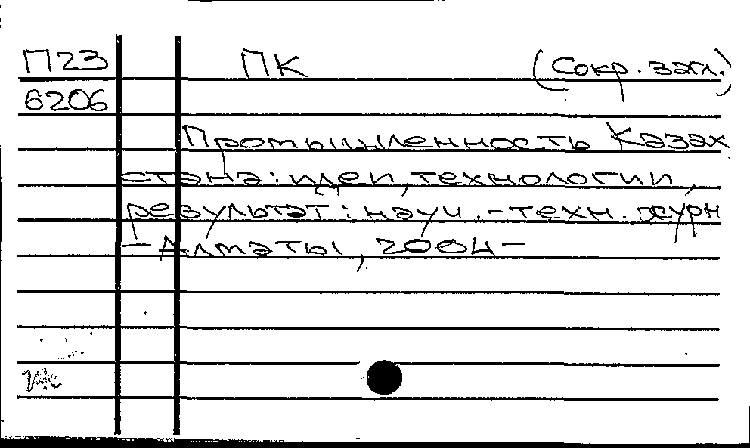 П23 ПК (Сокр. загл.)
6206
Промышленность Казах
стана: идеи, технологии,
результат: науч.-техн. журн
- Алматы, 2004 -